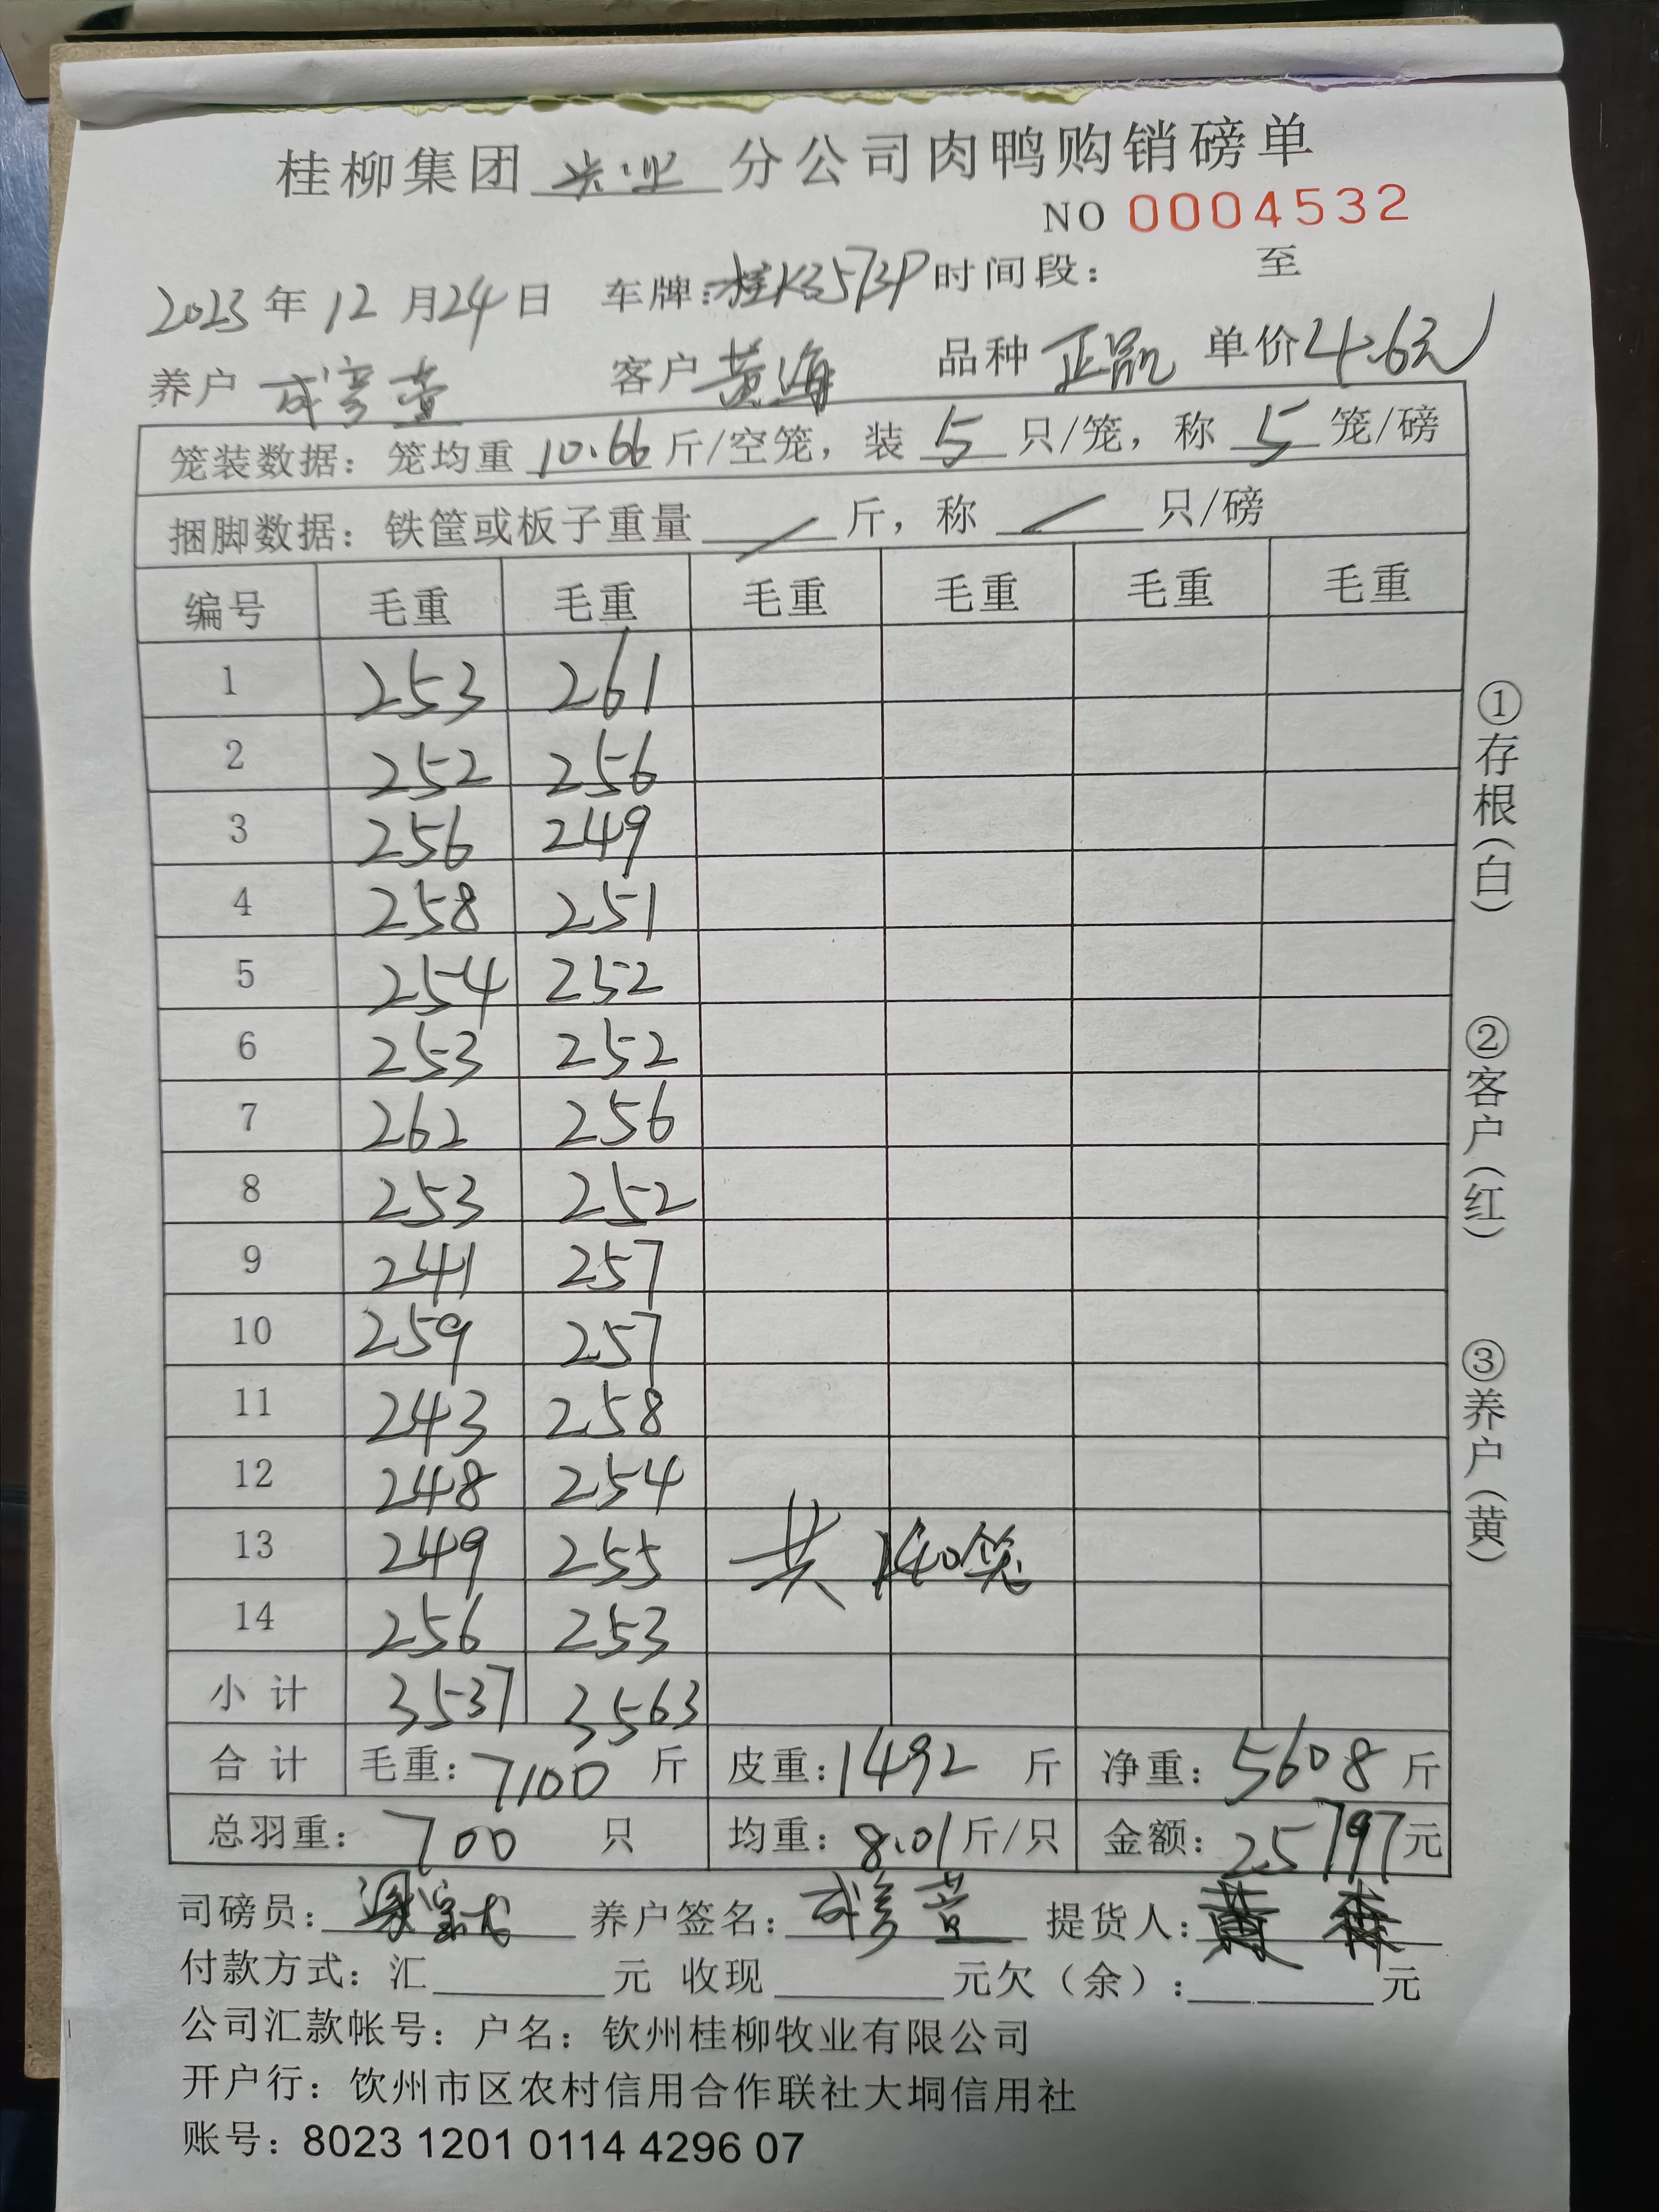 桂柳集团 兴业 分公司肉鸭购销磅单
NO 0004532
2023年12月24日 车牌:桂K3573P 时间段: 至
养户 客户 黄海 品种 正品 单价 4.6元
笼装数据: 笼均重 10.66 斤/空笼, 装 5 只/笼, 称 5 笼/磅
捆脚数据: 铁筐或板子重量 / 斤, 称 / 只/磅
编号 毛重 毛重 毛重 毛重 毛重 毛重
1 253 261
2 252 256
3 256 249
4 258 251
5 254 252
6 253 252
7 262 256
8 253 252
9 241 257
10 259 257
11 243 258
12 248 254
13 249 255 共 140笼
14 256 253
小计 3537 3563
合计 毛重: 7100 斤 皮重: 1492 斤 净重: 5608 斤
总羽重: 700 只 均重: 8.01 斤/只 金额: 25797 元
司磅员: 养户签名: 提货人: 黄
付款方式: 汇 元 收现 元欠(余): 元
公司汇款帐号: 户名: 钦州桂柳牧业有限公司
开户行: 钦州市区农村信用合作联社大垌信用社
账号: 8023 1201 0114 4296 07
①存根(白)
②客户(红)
③养户(黄)